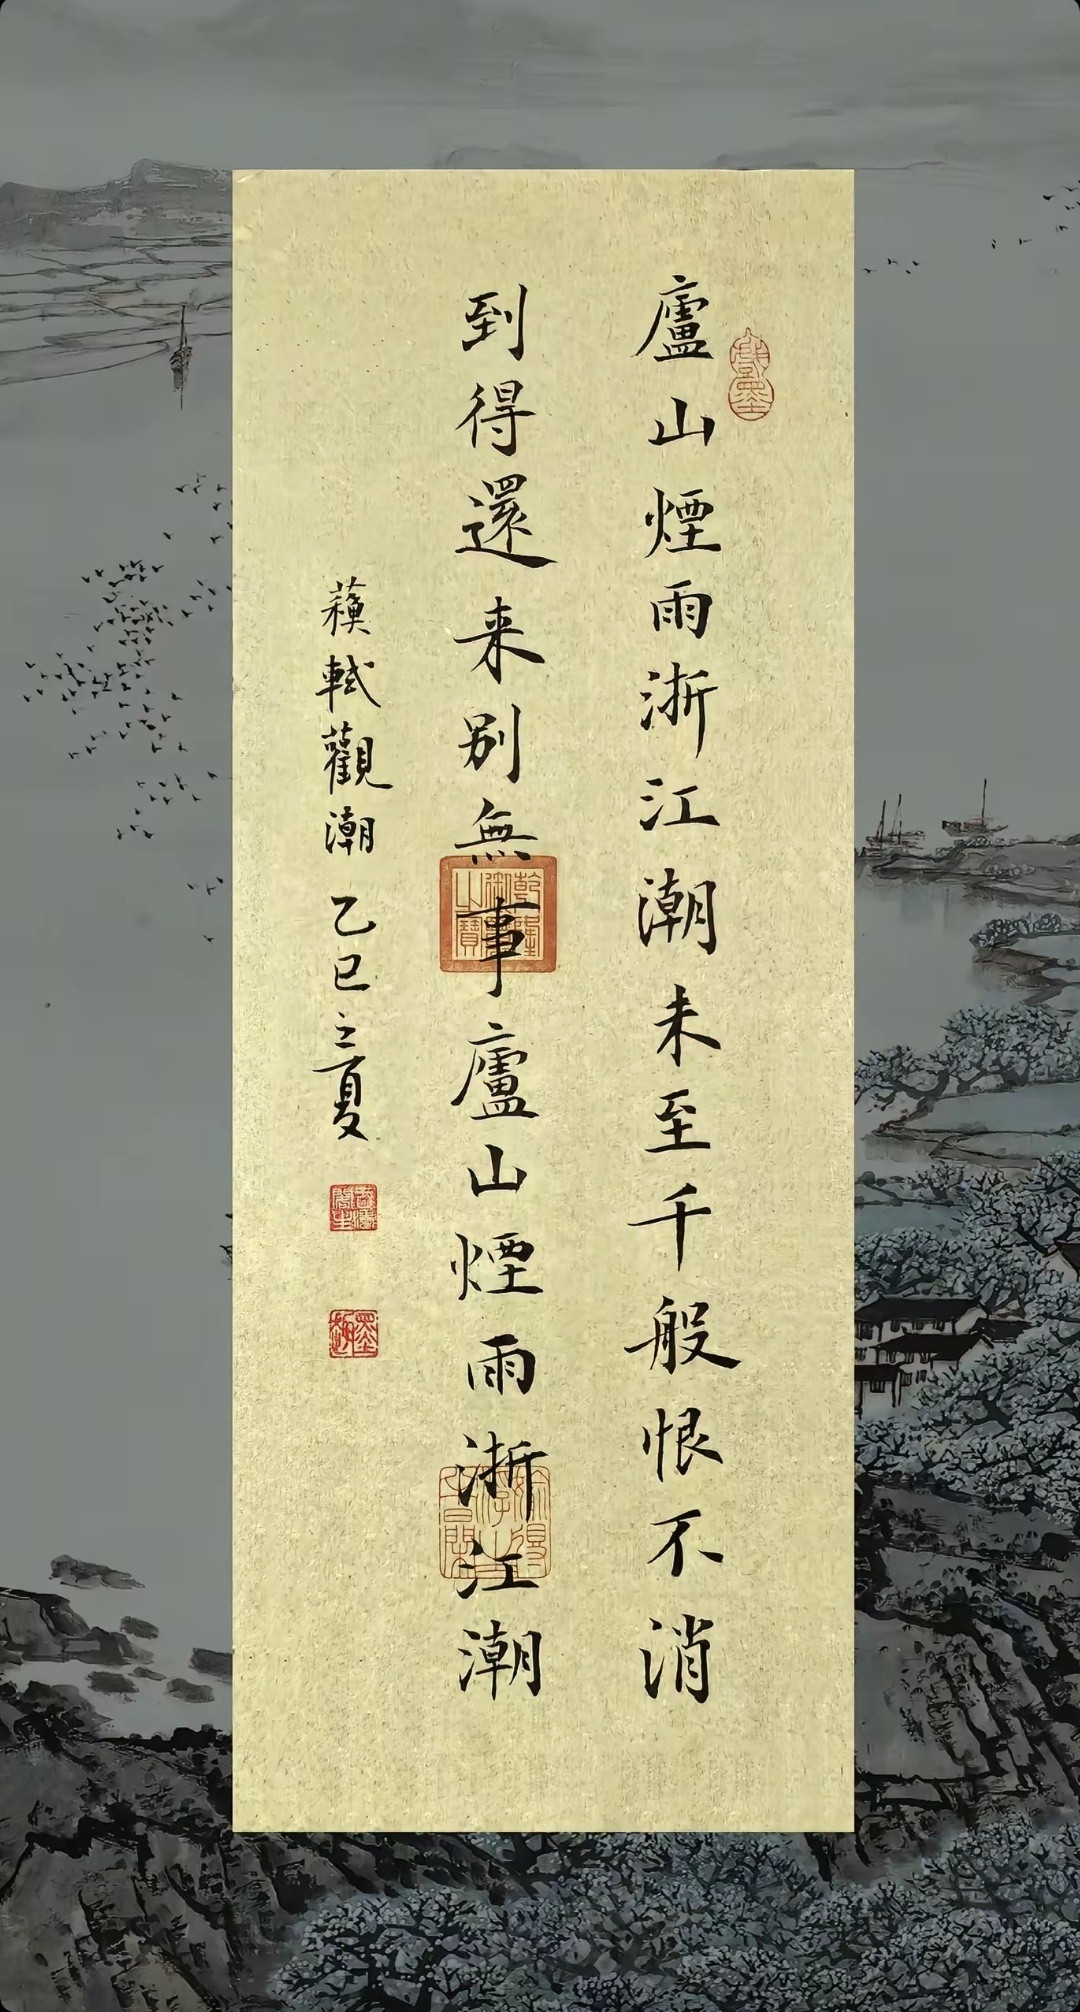 廬山煙雨浙江潮未至千般恨不消
到得還来别無事廬山煙雨浙江潮
蘇軾觀潮 乙巳之夏
乾隆御覽之寶